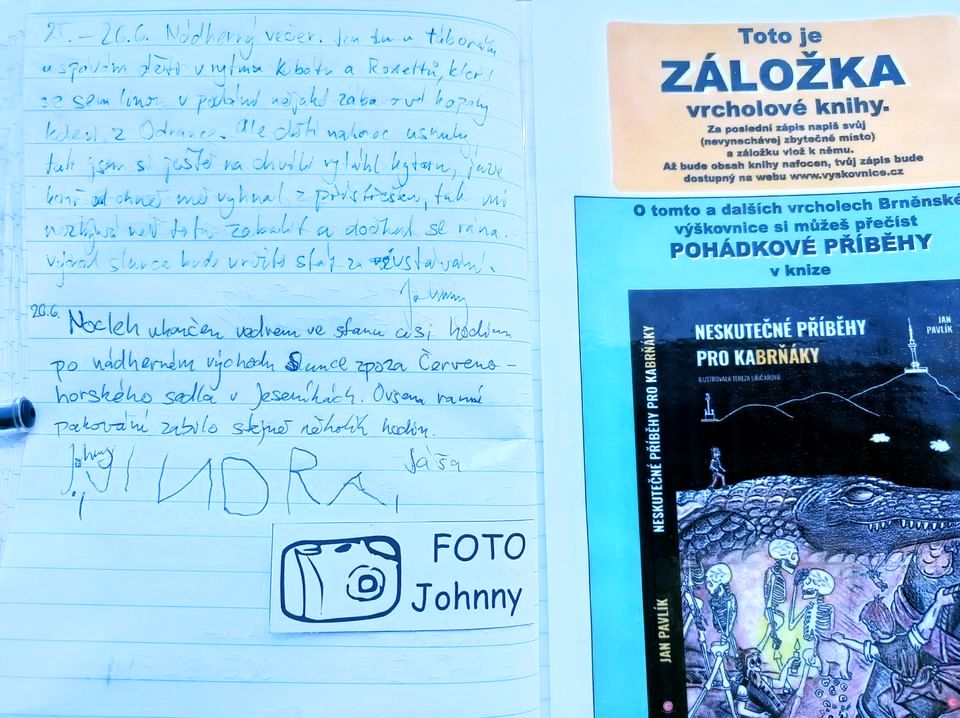 25. – 26.6. Nádherný večer. Jen tu u táboráku
uspávám děti v rytmu Kabátu a Rozettů, které
se sem linou v podání nějaké zábavové kapely
kdesi z Odrance. Ale děti nakonec usnuly
tak jsem si ještě na chvíli vytáhl kytaru,
mě vyhnal z přístřešku, tak mi
nezbývá než toto zabalit a dočkat se rána.
Východ slunce bude určitě stát za vstávání.
Johnny
26.6.
Nocleh ukončen vedrem ve stanu asi hodinu
po nádherném východu Slunce zpoza Červeno-
horského sedla v Jeseníkách. Ovšem ranní
pakování zabilo stejně několik hodin.
Johnny
JINDRA,
Sáša
FOTO
Johnny
Toto je
ZÁLOŽKA
vrcholové knihy.
Za poslední zápis napiš svůj
(nevynechávej zbytečně místo)
a záložku vlož k němu.
Až bude obsah knihy nafocen, tvůj zápis bude
dostupný na webu www.vyskovnice.cz
O tomto a dalších vrcholech Brněnské
výškovnice si můžeš přečíst
POHÁDKOVÉ PŘÍBĚHY
v knize
NESKUTEČNÉ PŘÍBĚHY
PRO KABRŇÁKY
JAN
PAVLÍK
ILUSTROVALA TEREZA
NESKUTEČNÉ PŘÍBĚHY PRO KABRŇÁKY
JAN PAVLÍK